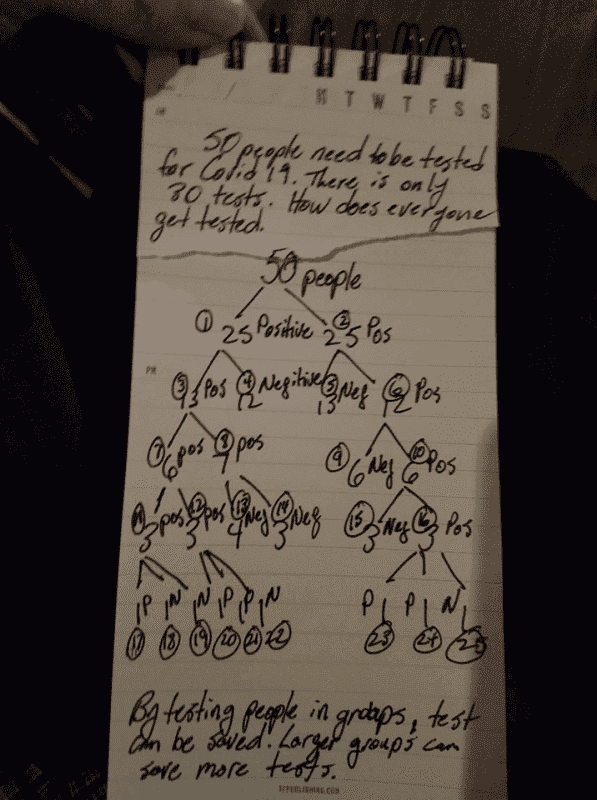 M T W T F S S
50 people need to be tested
for Covid 19. There is only
30 tests. How does everyone
get tested.
50 people
① 25 Positive ② 25 Pos
PM
③ 13 Pos ④ 12 Negitive ⑤ 13 Neg ⑥ 12 Pos
⑦ 6 pos ⑧ 7 pos ⑨ 6 Neg ⑩ 6 Pos
⑪ 3 pos ⑫ 3 pos ⑬ 4 Neg ⑭ 3 Neg ⑮ 3 Neg ⑯ 3 Pos
P N N P P N P P N
⑰ ⑱ ⑲ ⑳ ㉑ ㉒ ㉓ ㉔ ㉕
By testing people in groups, test
can be saved. Larger groups can
save more tests.